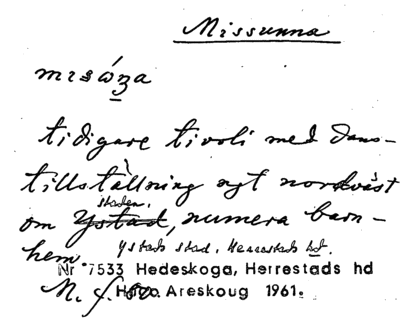 Missunna
mɪsώʒa
tidigare tivoli med dans-
tillställning nyt nordväst
staden,
om Ystad, numera barn-
hem
Ystads stad, Herrestads hd.
Nr 7533 Hedeskoga, Herrestads hd
Hugo Areskoug 1961.